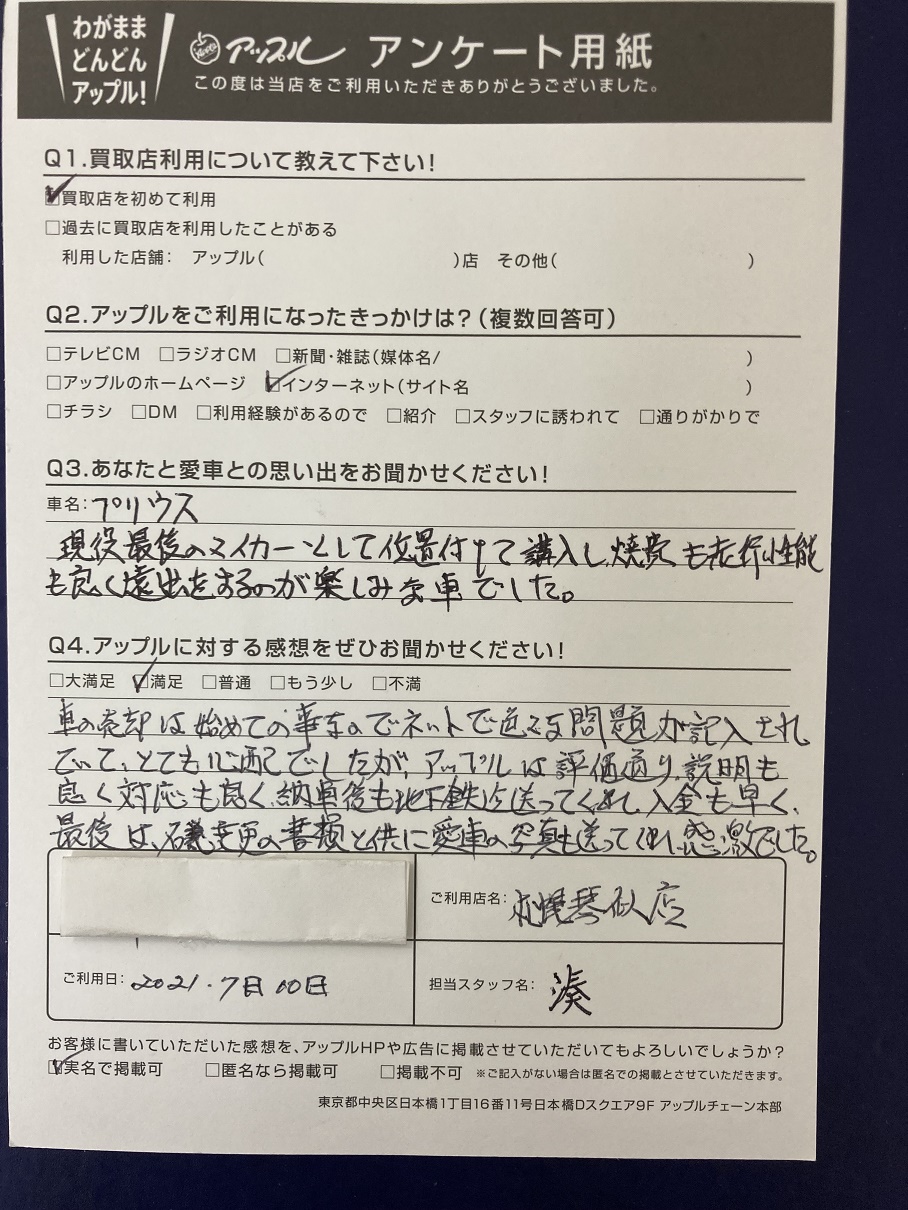 わがまま
どんどん
アップル!
アップル アンケート用紙
この度は当店をご利用いただきありがとうございました。
Q1.買取店利用について教えて下さい!
☑買取店を初めて利用
□過去に買取店を利用したことがある
利用した店舗： アップル( )店 その他( )
Q2.アップルをご利用になったきっかけは?(複数回答可)
□テレビCM □ラジオCM □新聞・雑誌(媒体名/ )
□アップルのホームページ ☑インターネット(サイト名 )
□チラシ □DM □利用経験があるので □紹介 □スタッフに誘われて □通りがかりで
Q3.あなたと愛車との思い出をお聞かせください!
車名：プリウス
現役最後のマイカーとして位置付けて購入し、燃費も走行性能
も良く遠出をするのが楽しみな車でした。
Q4.アップルに対する感想をぜひお聞かせください!
□大満足 ☑満足 □普通 □もう少し □不満
車の売却は始めての事なのでネットで色々な問題が記入され
ていて、とても心配でしたが、アップルは評価通り、説明も
良く対応も良く、納車後も地下鉄迄送ってくれて、入金も早く、
最後は、変更の書類と供に愛車の写真も送ってくれ、感激でした。
ご利用店名：札幌琴似店
ご利用日：2021.7月10日
担当スタッフ名：湊
お客様に書いていただいた感想を、アップルHPや広告に掲載させていただいてもよろしいでしょうか?
☑実名で掲載可 □匿名なら掲載可 □掲載不可 ※ご記入がない場合は匿名での掲載とさせていただきます。
東京都中央区日本橋1丁目16番11号日本橋Dスクエア9F アップルチェーン本部